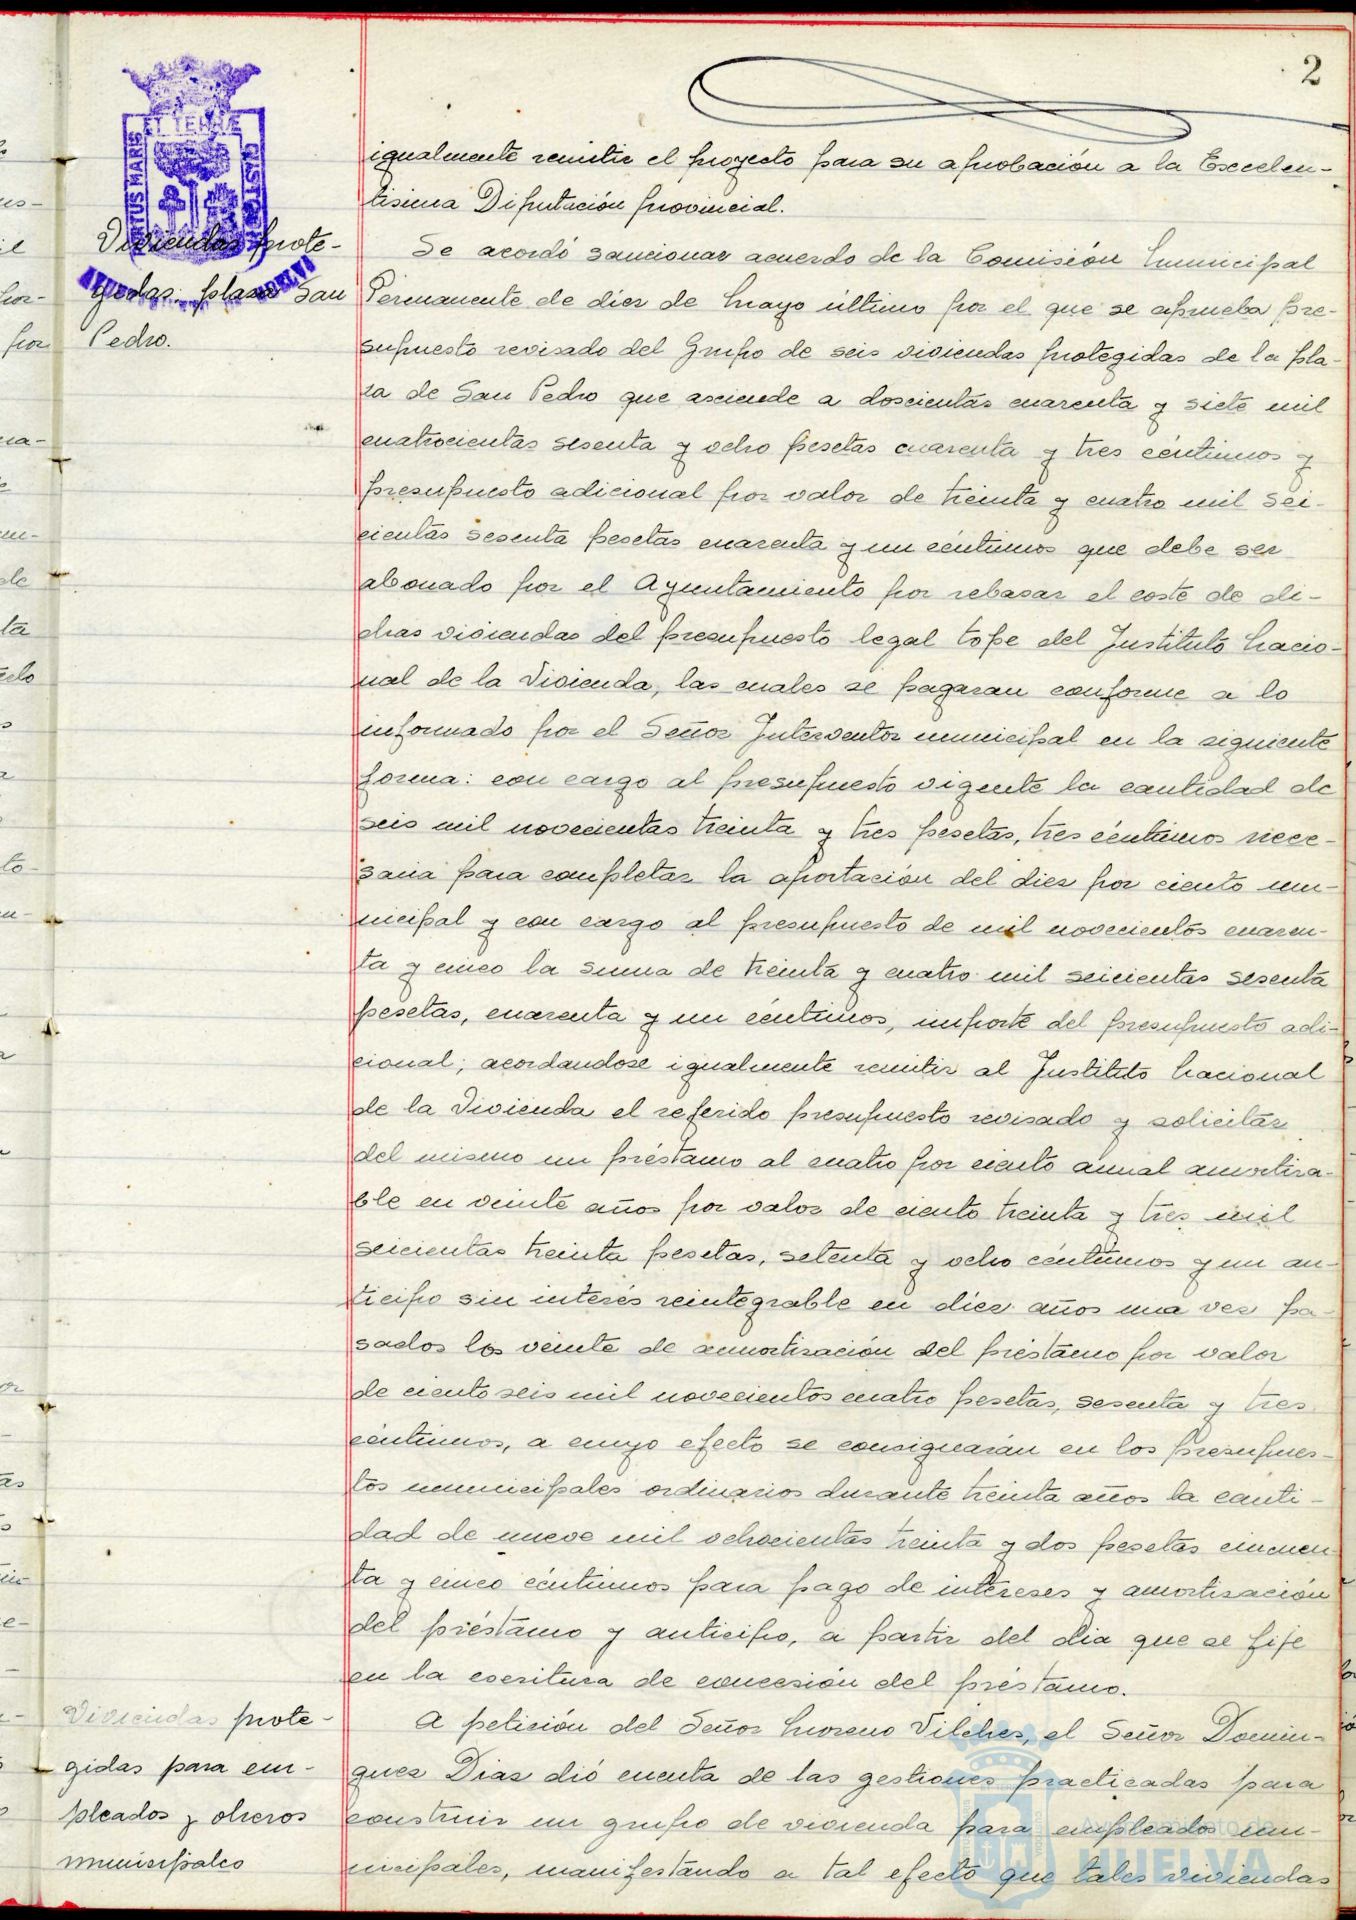 2
PORTUS MARIS
ET TERRÆ
CUSTODIA
igualmente remitir el proyecto para su aprobación a la Excelen-
tisima Diputación provincial.
Viviendas prote-
gidas: plaza San
Pedro.
Se acordó sancionar acuerdo de la Comisión Municipal
Permanente de diez de Mayo ultimo por el que se aprueba pre-
supuesto revisado del Grupo de seis viviendas protegidas de la pla-
za de San Pedro que asciende a doscientas cuarenta y siete mil
cuatrocientas sesenta y ocho pesetas cuarenta y tres céntimos y
presupuesto adicional por valor de treinta y cuatro mil sei-
cientas sesenta pesetas cuarenta y un céntimos que debe ser
abonado por el Ayuntamiento por rebasar el coste de di-
chas viviendas del presupuesto legal tope del Instituto Nacio-
nal de la Vivienda, las cuales se pagaran conforme a lo
informado por el Señor Interventor municipal en la siguiente
forma: con cargo al presupuesto vigente la cantidad de
seis mil novecientas treinta y tres pesetas, tres céntimos nece-
saria para completar la aportación del diez por ciento mu-
nicipal y con cargo al presupuesto de mil novecientos cuaren-
ta y cinco la suma de treinta y cuatro mil seicientas sesenta
pesetas, cuarenta y un céntimos, importe del presupuesto adi-
cional; acordandose igualmente remitir al Instituto Nacional
de la Vivienda el referido presupuesto revisado y solicitar
del mismo un préstamo al cuatro por ciento anual amortiza-
ble en veinte años por valor de ciento treinta y tres mil
seicientas treinta pesetas, setenta y ocho céntimos y un an-
ticipo sin interés reintegrable en diez años una vez pa-
sados los veinte de amortización del préstamo por valor
de ciento seis mil novecientos cuatro pesetas, sesenta y tres
céntimos, a cuyo efecto se consignarán en los presupues-
tos municipales ordinarios durante treinta años la canti-
dad de nueve mil ochocientas treinta y dos pesetas cincuen-
ta y cinco céntimos para pago de intereses y amortización
del préstamo y anticipo, a partir del dia que se fije
en la escritura de concesión del préstamo.
Viviendas prote-
gidas para em-
pleados y obreros
municipales
A petición del Señor Moreno Vilches, el Señor Domin-
guez Diaz dió cuenta de las gestiones practicadas para
construir un grupo de vivienda para empleados mu-
nicipales, manifestando a tal efecto que tales viviendas
Ayuntamiento de
HUELVA